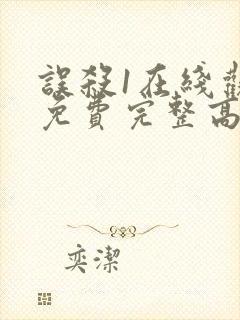 誤殺1在綫觀
免費完整高
奕潔